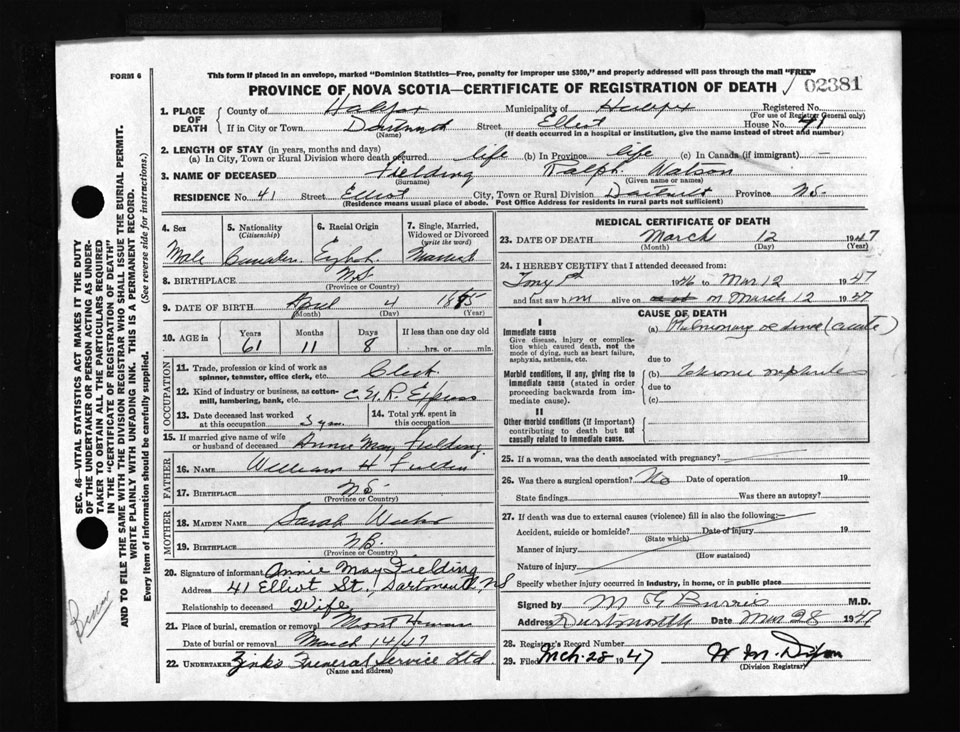 FORM 6
This form if placed in an envelope, marked "Dominion Statistics—Free, penalty for improper use $300," and properly addressed will pass through the mail "FREE"
PROVINCE OF NOVA SCOTIA—CERTIFICATE OF REGISTRATION OF DEATH 02381
1. PLACE OF DEATH
County of Halifax Municipality of Halifax Registered No.
(For use of Registrar General only)
If in City or Town Dartmouth Street Elliot House No. 41
(Name) (If death occurred in a hospital or institution, give the name instead of street and number)
2. LENGTH OF STAY (in years, months and days)
(a) In City, Town or Rural Division where death occurred life (b) In Province life (c) In Canada (if immigrant) —
3. NAME OF DECEASED Fielding Ralph Watson
(Surname) (Given name or names)
RESIDENCE No. 41 Street Elliot City, Town or Rural Division Dartmouth Province N.S.
(Residence means usual place of abode. Post Office Address for residents in rural parts not sufficient)
4. Sex
Male
5. Nationality
(Citizenship)
Canadian
6. Racial Origin
English
7. Single, Married, Widowed or Divorced
(write the word)
Married
8. BIRTHPLACE N.S.
(Province or Country)
9. DATE OF BIRTH April 4 1885
(Month) (Day) (Year)
10. AGE in
Years Months Days If less than one day old
61 11 8 hrs. or min.
OCCUPATION
11. Trade, profession or kind of work as spinner, teamster, office clerk, etc. Clerk
12. Kind of industry or business, as cotton-mill, lumbering, bank, etc. C.N.R. Express
13. Date deceased last worked at this occupation 3 yrs.
14. Total yrs. spent in this occupation
15. If married give name of wife or husband of deceased Annie May Fielding
FATHER
16. NAME William H
17. BIRTHPLACE N.S.
(Province or Country)
MOTHER
18. MAIDEN NAME Sarah
19. BIRTHPLACE N.B.
(Province or Country)
20. Signature of informant Annie May Fielding
Address 41 Elliot St., Dartmouth, N.S
Relationship to deceased Wife
21. Place of burial, cremation or removal Mount Herman
Date of burial or removal March 14/47
22. UNDERTAKER Zink's Funeral Service Ltd.
(Name and address)
MEDICAL CERTIFICATE OF DEATH
23. DATE OF DEATH March 12 1947
(Month) (Day) (Year)
24. I HEREBY CERTIFY that I attended deceased from:
1946 to Mar 12 1947
and last saw him alive on March 12 1947
CAUSE OF DEATH
I
Immediate cause
Give disease, injury or complication which caused death, not the mode of dying, such as heart failure, asphyxia, asthenia, etc.
(a) Pulmonary oedema (acute)
due to
Morbid conditions, if any, giving rise to immediate cause (stated in order proceeding backwards from immediate cause).
(b) Chronic nephritis
due to
(c)
II
Other morbid conditions (if important) contributing to death but not causally related to immediate cause.
25. If a woman, was the death associated with pregnancy?
26. Was there a surgical operation? No Date of operation 19
State findings Was there an autopsy?
27. If death was due to external causes (violence) fill in also the following:—
Accident, suicide or homicide? Date of injury 19
(State which)
Manner of injury
(How sustained)
Nature of injury
Specify whether injury occurred in industry, in home, or in public place
Signed by M G Burris M.D.
Address Dartmouth Date Mar 28 1947
28. Registrar's Record Number
29. Filed Mch. 28 1947 W. M. Dixon
(Division Registrar)
SEC. 46—VITAL STATISTICS ACT MAKES IT THE DUTY
OF THE UNDERTAKER OR PERSON ACTING AS UNDER-
TAKER TO OBTAIN ALL THE PARTICULARS REQUIRED
IN THE "CERTIFICATE OF REGISTRATION OF DEATH"
AND TO FILE THE SAME WITH THE DIVISION REGISTRAR WHO SHALL ISSUE THE BURIAL PERMIT.
WRITE PLAINLY WITH UNFADING INK. THIS IS A PERMANENT RECORD.
Every item of information should be carefully supplied. (See reverse side for instructions.)